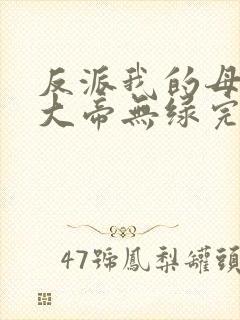 反派我的母
大帝無缘完
47號鳳梨罐頭